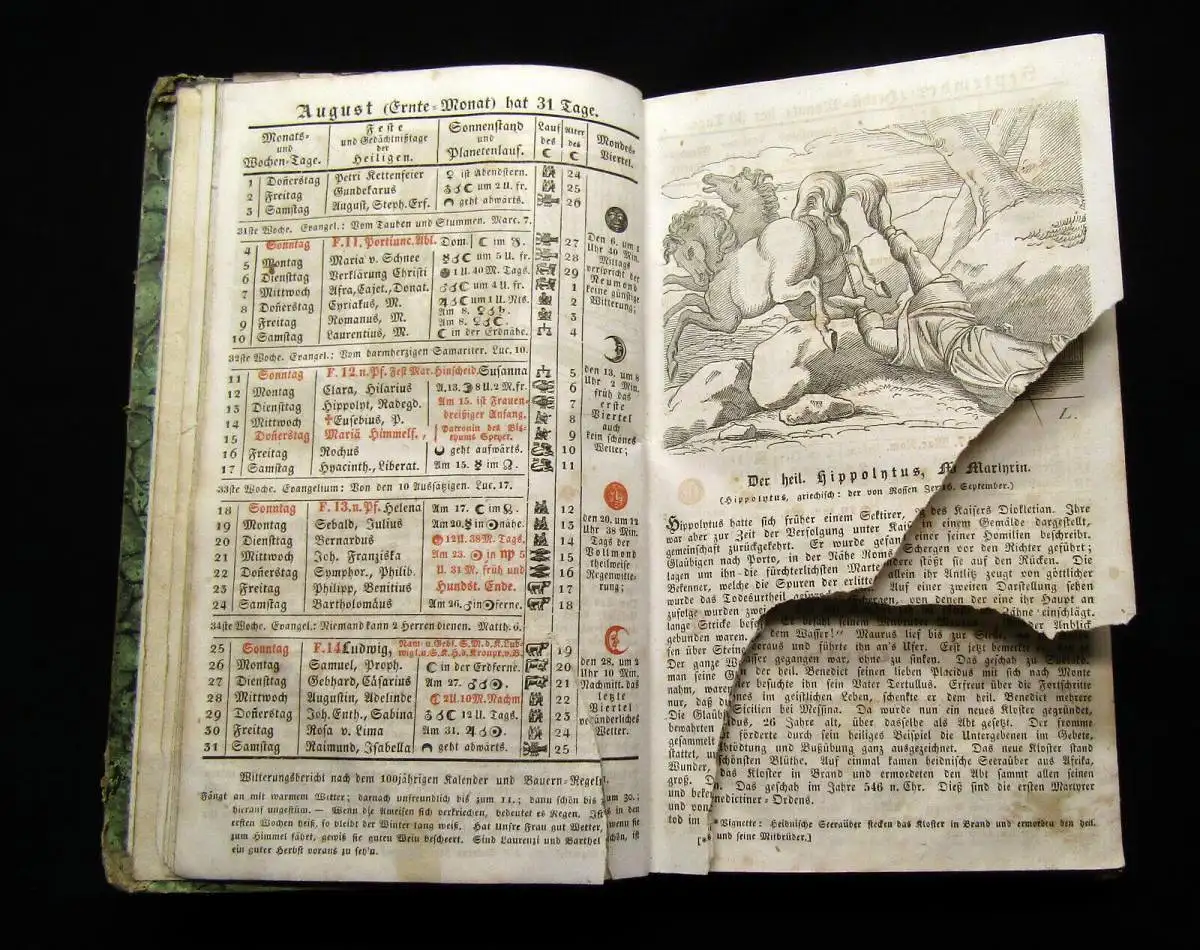 August (Ernte-Monat) hat 31 Tage.
Monats- und Wochen-Tage. Feste und Gedächtnißtage der Heiligen. Sonnenstand und Planetenlauf. Lauf des ☾ Alter des ☾ Mondes-Viertel.
1 Donerstag Petri Kettenfeier ♀ ist Abendstern. 24
2 Freitag Gundekarus ♂☌☾ um 2 U. fr. 25
3 Samstag August, Steph. Erf. geht abwärts. 26
31ste Woche. Evangel.: Vom Tauben und Stummen. Marc. 7.
4 Sonntag F. 11. Portiunc. Abl. Dom. ☾ im 27
5 Montag Maria v. Schnee ☿☌☾ um 5 U. fr. 28
6 Dienstag Verklärung Christi 1 U. 40 M. Tags. 29
7 Mittwoch Afra, Cajet., Donat. um 4 U. fr. 1
8 Donerstag Cyriakus, M. ♃☌☾ um 1 U. Nts. 2
9 Freitag Romanus, M. Am 8. 3
10 Samstag Laurentius, M. ☾ in der Erdnähe. 4
Den 6. um 1
Uhr 40 Min.
Mittags
verspricht der
Neumond
keine günstige
Witterung;
32ste Woche. Evangel.: Vom barmherzigen Samariter. Luc. 10.
11 Sonntag F. 12. n. Pf. Fest Mar. Hinscheid. Susanna 5
12 Montag Clara, Hilarius A. 13. 8 U. 2 M. fr. 6
13 Dienstag Hippolyt, Radegd. Am 15. ist Frauen- 7
14 Mittwoch †Eusebius, P. dreißiger Anfang. 8
15 Donerstag Mariä Himmelf., Patronin des Bisthums Speyer. 9
16 Freitag Rochus geht aufwärts. 10
17 Samstag Hyacinth., Liberat. Am 15. ☿ im ♌. 11
den 13. um 8
Uhr 2 Min.
früh das
erste
Viertel
auch
kein schönes
Wetter;
33ste Woche. Evangelium: Von den 10 Aussätzigen. Luc. 17.
18 Sonntag F. 13. n. Pf. Helena Am 17. ☾ im 12
19 Montag Sebald, Julius Am 20. ☿ in ☉nähe. 13
20 Dienstag Bernardus 12 U. 38 M. Tags. 14
21 Mittwoch Joh. Franziska Am 23. ☉ in ♍ 5 15
22 Donerstag Symphor., Philib. U. 31 M. früh und 16
23 Freitag Philipp, Benitius Hundst. Ende. 17
24 Samstag Bartholomäus Am 26. ☉ferne. 18
den 20. um 12
Uhr 38 Min.
Tags der
Vollmond
theilweise
Regenwitte-
rung;
34ste Woche. Evangel.: Niemand kann 2 Herren dienen. Matth. 6.
25 Sonntag F. 14 Ludwig, Nam- u. Gebf. S. M. d. K. Lud- wigI. u. S. K. H. d. Kronpr. v. B. 19
26 Montag Samuel, Proph. ☾ in der Erdferne. 20
27 Dienstag Gebhard, Cäsarius Am 27. 21
28 Mittwoch Augustin, Adelinde 2 U. 10 M. Nachm 22
29 Donerstag Joh. Enth., Sabina 12 U. Tags. 23
30 Freitag Rosa v. Lima Am 31. 24
31 Samstag Raimund, Isabella geht abwärts. 25
den 28. um 2
Uhr 10 Min.
Nachmitt. das
letzte
Viertel
veränderliches
Wetter.
Witterungsbericht nach dem 100jährigen Kalender und Bauern-Regeln.
Fängt an mit warmem Wetter; darnach unfreundlich bis zum 11.; dann schön bis zum 30.;
hierauf ungestüm. — Wenn die Ameisen sich verkriechen, bedeutet es Regen. Ist's in den
ersten Wochen heiß, so bleibt der Winter lang weiß. Hat Unsre Frau gut Wetter, wenn sie
zum Himmel fährt, gewiß sie guten Wein bescheert. Sind Laurenzi und Barthel schön, ist
ein guter Herbst voraus zu seh'n.
L.
Der heil. Hippolytus, M. Martyrin.
(Hippolytus, griechisch: der von Rossen Zer 16. September.)
Hippolytus hatte sich früher einem Sektirer, des Kaisers Diokletian. Ihre
war aber zur Zeit der Verfolgung unter Kai in einem Gemälde dargestellt,
gemeinschaft zurückgekehrt. Er wurde gefan einer seiner Homilien beschreibt.
Gläubigen nach Porto, in der Nähe Roms Schergen vor den Richter geführt;
lagen um ihn die fürchterlichsten Marte andere stößt sie auf den Rücken. Die
Bekenner, welche die Spuren der erlitte allein ihr Antlitz zeugt von göttlicher
wurde das Todesurtheil Auf einer zweiten Darstellung sehen
zufolge wurden zwei Schergen, von denen der eine ihr Haupt an
lange Stricke Zähne einschlägt.
gebunden waren. der Anblick
dem Wasser!" Maurus lief bis zur
fen über Stein heraus und führte ihn an's Ufer. Erst jetzt bemerkte
Der ganze Wasser gegangen war, ohne zu sinken. Das geschah zu
man seine der heil. Benedict seinen lieben Placidus mit sich nach Monte
nahm, waren besuchte ihn sein Vater Tertullus. Erfreut über die Fortschritte
nur, daß nes im geistlichen Leben, schenkte er dem heil. Benedict mehrere
Die Gläub Sicilien bei Messina. Da wurde nun ein neues Kloster gegründet,
bewahrten dus, 26 Jahre alt, über dasselbe als Abt gesetzt. Der fromme
gesammelt förderte durch sein heiliges Beispiel die Untergebenen im Gebete,
stattet, Abtödtung und Bußübung ganz ausgezeichnet. Das neue Kloster stand
Wunder, schönsten Blüthe. Auf einmal kamen heidnische Seeräuber aus Afrika,
groß. das Kloster in Brand und ermordeten den Abt sammt allen seinen
und beken Das geschah im Jahre 546 n. Chr. Dieß sind die ersten Martyrer
und von nedictiner-Ordens.
tod im
[* Vignette: Heidnische Seeräuber stecken das Kloster in Brand und ermorden den heil.
und seine Mitbrüder.]